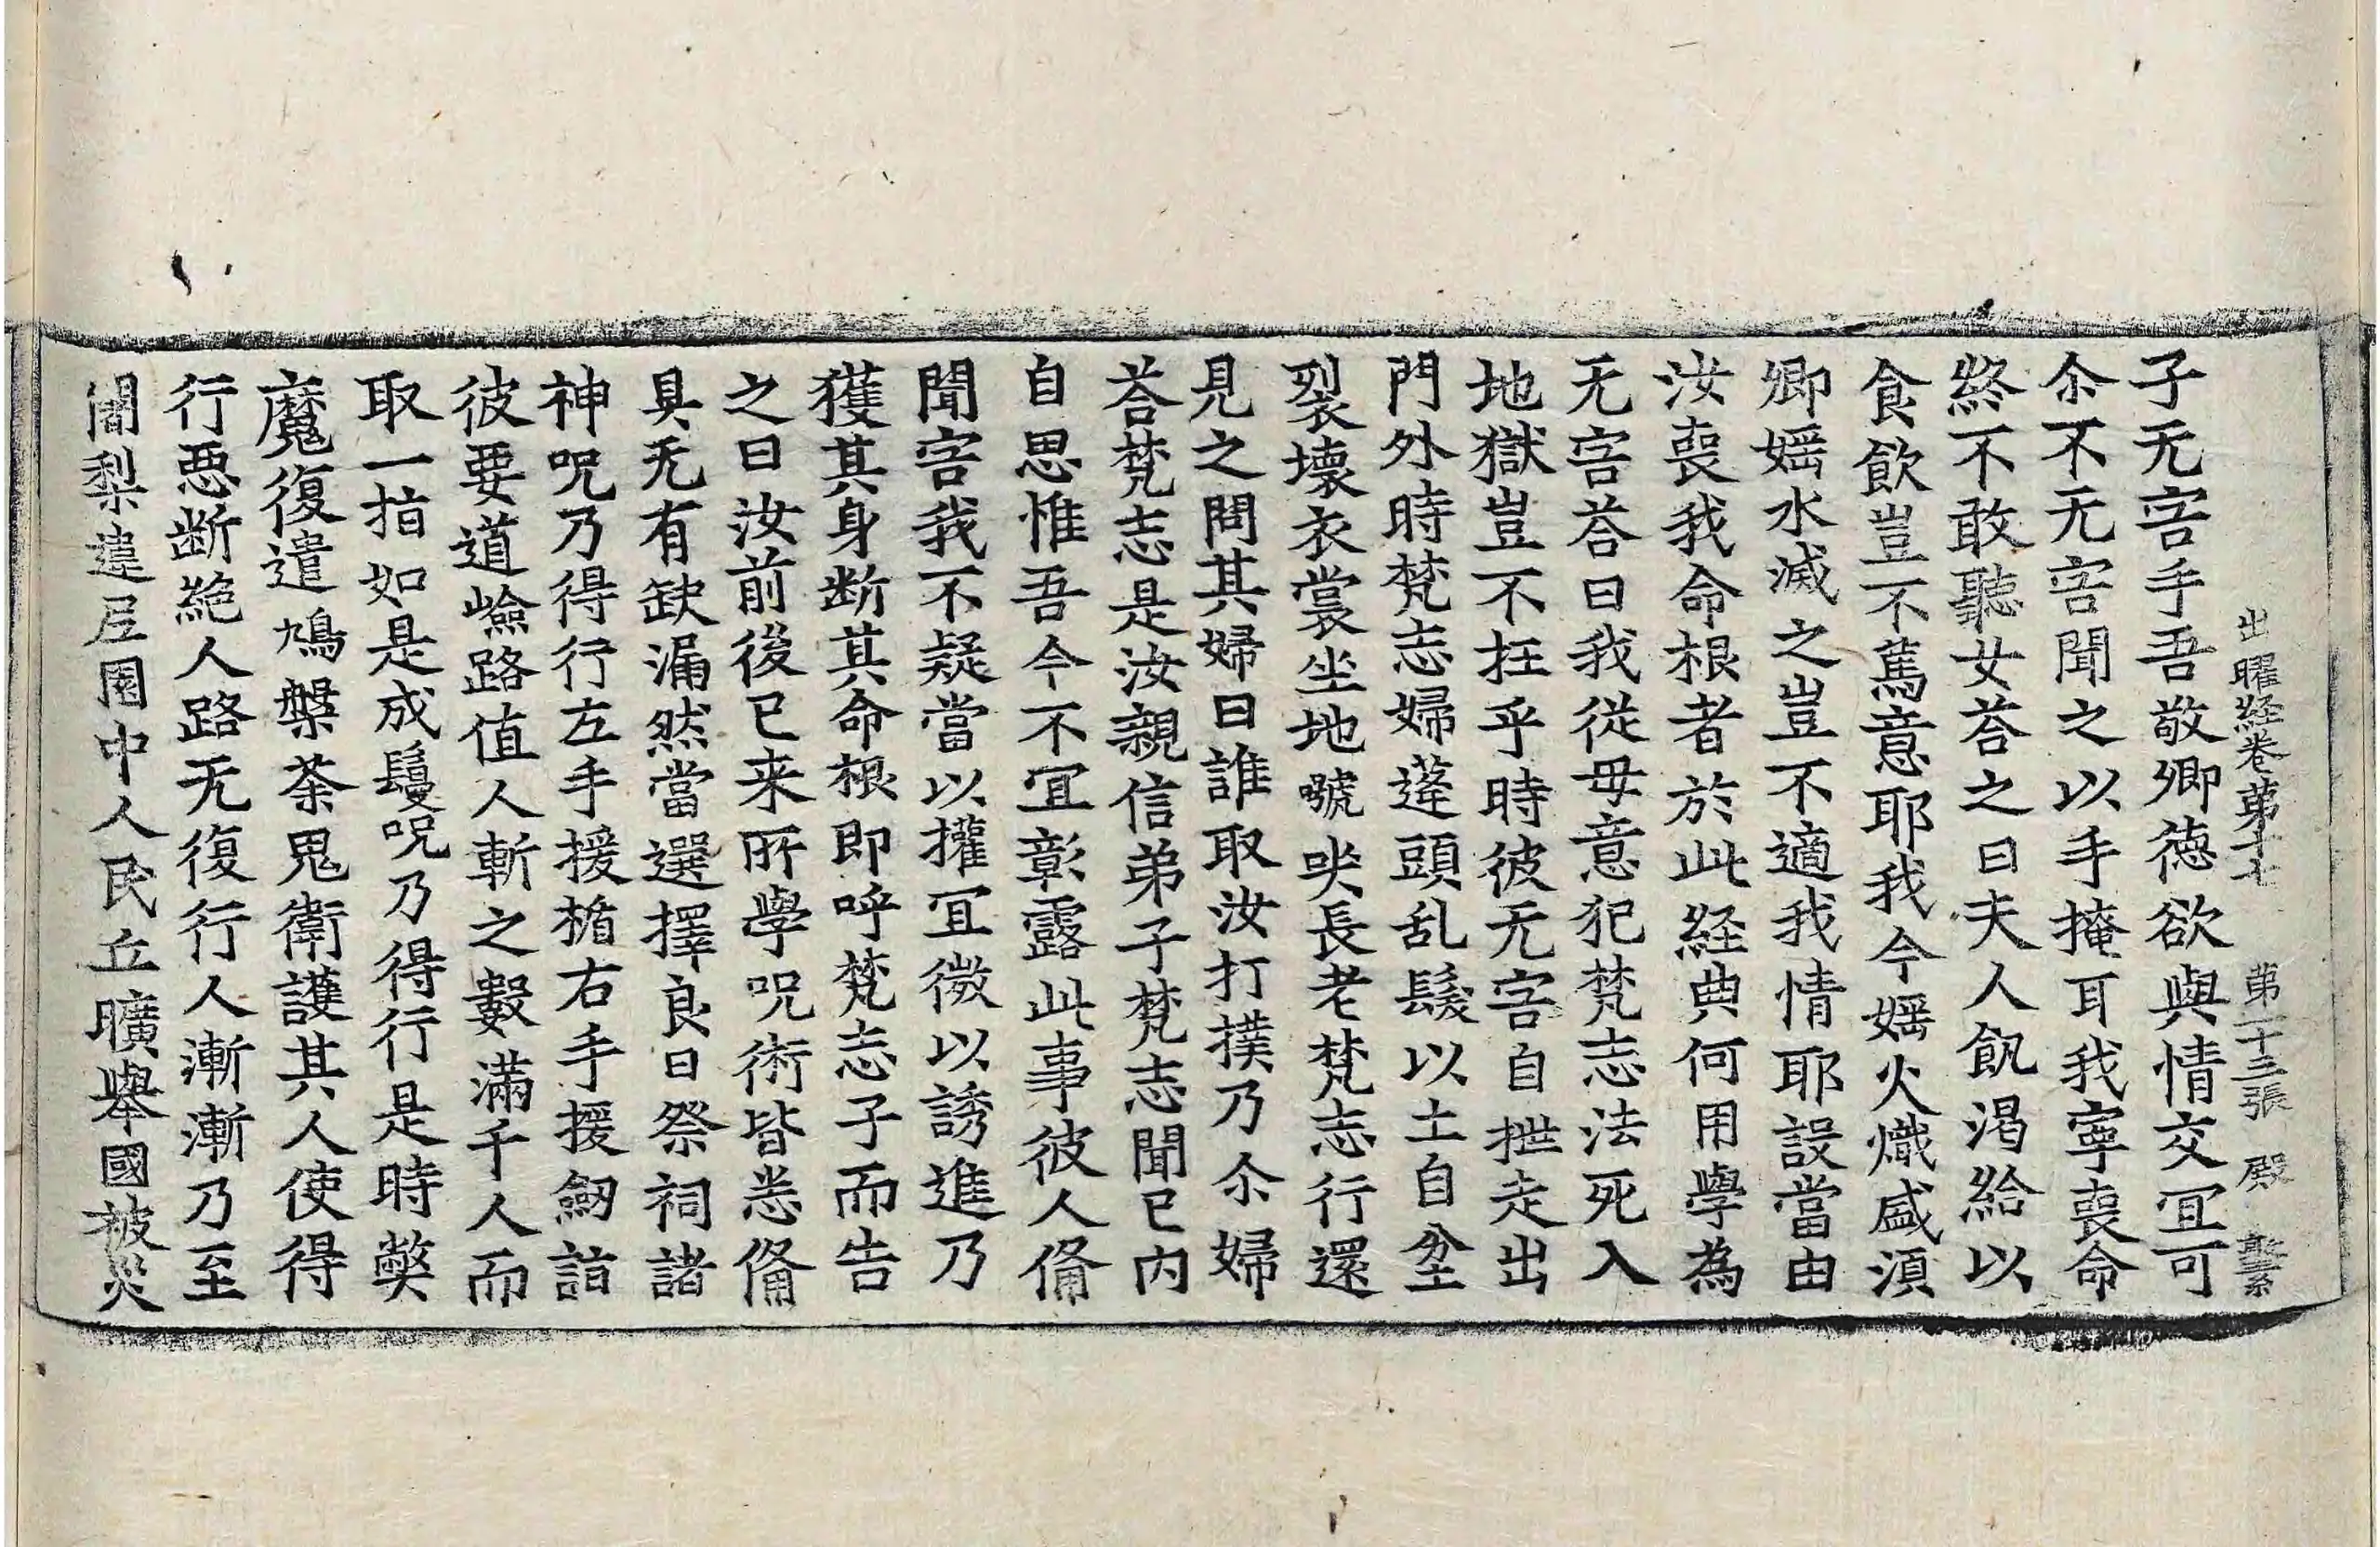 出曜経巻第十七　第二十三張　殿
子无害手吾敬卿德欲與情交冝可
尒不无害聞之以手掩耳我寧喪命
終不敢聽女荅之曰夫人飢渴給以
食飲豈不篤意耶我今婬火熾盛湏
卿婬水滅之豈不適我情耶設當由
汝喪我命根者於此経典何用學為
无害荅曰我従母意犯梵志法死入
地獄豈不抂乎時彼无害自拙走出
門外時梵志婦蓬頭乱髮以土自坌
裂壞衣裳坐地嘷哭長老梵志行還
見之問其婦曰誰取汝打撲乃尒婦
荅梵志是汝親信弟子梵志聞已内
自思惟吾今不冝彰露此事彼人俻
聞害我不疑當以權冝微以誘進乃
獲其身断其命根即呼梵志子而告
之曰汝前後已来所學呪術皆悉俻
具无有缺漏然當選擇良日祭祠諸
神呪乃得行左手援楯右手援劒詣
彼要道嶮路值人斬之數滿千人而
取一指如是成鬘呪乃得行是時獘
魔復遣鳩槃荼鬼衛護其人使得
行惡断絶人路无復行人漸漸乃至
闍梨違尼園中人民丘曠舉國被災